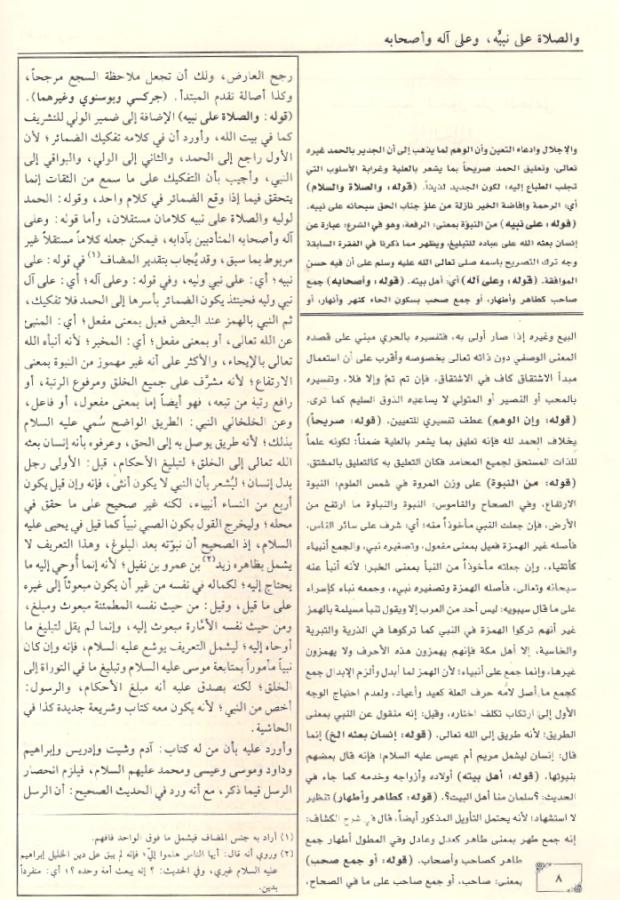 والصلاة على نبيِّه، وعلى آله وأصحابه
والإجلال وادعاء التعين وأن الوهم لما يذهب إلى أن الجدير بالحمد غيره
تعالى، وتعليق الحمد صريحاً بما يشعر بالعلية وغرابة الأسلوب التي
تجلب الطباع إليه؛ لكون الجديد لذيذاً. (قوله: والصلاة والسلام)
أي: الرحمة وإفاضة الخير نازلة من علوّ جناب الحق سبحانه على نبيه.
(قوله: على نبيه) من النبوّة بمعنى: الرفعة، وهو في الشرع: عبارة عن
إنسان بعثه الله على عباده للتبليغ، ويظهر مما ذكرنا في الفقرة السابقة
وجه ترك التصريح باسمه صلى تعالى الله عليه وسلم على أن فيه حسن
الموافقة. (قوله: وعلى آله) أي: أهل بيته. (قوله: وأصحابه) جمع
صاحب كطاهر وأطهار، أو جمع صحب بسكون الحاء كنهر وأنهار، أو
البيع وغيره إذا صار أولى به، فتفسيره بالحري مبني على قصده
المعنى الوصفي دون ذاته تعالى بخصوصه وأقرب على أن استعمال
مبدأ الاشتقاق كاف في الاشتقاق، فإن تم تمّ وإلا فلا، وتفسيره
بالمحب أو النصير أو المتولي لا يساعده الذوق السليم كما ترى.
(قوله: وإن الوهم) عطف تفسيري للتعيين. (قوله: صريحاً)
بخلاف الحمد لله فإنه تعليق بما يشعر بالعلية ضمناً؛ لكونه علماً
للذات المستحق لجميع المحامد فكان التعليق به كالتعليق بالمشتق.
(قوله: من النبوة) على وزن المروة في شمس العلوم: النبوة
الارتفاع، وفي الصحاح والقاموس: النبوة والنباوة ما ارتفع من
الأرض، فإن جعلت النبي مأخوذاً منه؛ أي: شرف على سائر الناس،
فأصله غير الهمزة فعيل بمعنى مفعول، وتصغيره نبي، والجمع أنبياء
كأتقياء، وإن جعلته مأخوذاً من النبأ بمعنى الخبر؛ لأنه أنبأ عنه
سبحانه وتعالى، فأصله الهمزة وتصغيره نبيء، وجمعه نباء كإسراء
على ما قال سيبويه: ليس أحد من العرب إلا ويقول تنبأ مسيلمة بالهمز
غير أنهم تركوا الهمزة في النبي كما تركوها في الذرية والتبرية
والخاسية، إلا أهل مكة فإنهم يهمزون هذه الأحرف ولا يهمزون
غيرها، وإنما جمع على أنبياء؛ لأن الهمز لما أبدل وألزم الإبدال جمع
كجمع ما أصل لامه حرف العلة كعيد وأعياد، ولعدم احتياج الوجه
الأول إلى ارتكاب تكلف اختاره، وقيل: إنه منقول عن النبي بمعنى
الطريق؛ لأنه طريق إلى الله تعالى. (قوله: إنسان بعثه الخ) إنما
قال: إنسان ليشمل مريم أم عيسى عليه السلام؛ فإنه قال بعضهم
بنبوتها. (قوله: أهل بيته) أولاده وأزواجه وخدمه كما جاء في
الحديث: ؟سلمان منا أهل البيت؟. (قوله: كطاهر وأطهار) تنظير
لا استشهاد؛ لأنه يحتمل التأويل المذكور أيضاً. قال في شرح الكشاف:
إنه جمع طهر بمعنى طاهر كعدل وعادل وفي المطول أطهار جمع
طاهر كصاحب وأصحاب. (قوله: أو جمع صحب)
بمعنى: صاحب، أو جمع صاحب على ما في الصحاح،
رجح العارض، ولك أن تجعل ملاحظة السجع مرجحاً،
وكذا أصالة تقدم المبتدأ. (جركسي وبوسنوي وغيرهما).
(قوله: والصلاة على نبيه) الإضافة إلى ضمير الولي للتشريف
كما في بيت الله، وأورد أن في كلامه تفكيك الضمائر؛ لأن
الأول راجع إلى الحمد، والثاني إلى الولي، والبواقي إلى
النبي، وأجيب بأن التفكيك على ما سمع من الثقات إنما
يتحقق فيما إذا وقع الضمائر في كلام واحد، وقوله: الحمد
لوليه والصلاة على نبيه كلامان مستقلان، وأما قوله: وعلى
آله وأصحابه المتأدبين بآدابه، فيمكن جعله كلاماً مستقلاً غير
مربوط بما سبق، وقد يُجاب بتقدير المضاف(١) في قوله: على
نبيه؛ أي: على نبي وليه، وفي قوله: وعلى آله؛ أي: على آل
نبي وليه فحينئذ يكون الضمائر بأسرها إلى الحمد فلا تفكيك،
ثم النبي بالهمز عند البعض فعيل بمعنى مفعل؛ أي: المنبئ
عن الله تعالى، أو بمعنى مفعل؛ أي: المخبر؛ لأنه أنبأه الله
تعالى بالإيحاء، والأكثر على أنه غير مهموز من النبوة بمعنى
الارتفاع؛ لأنه مشرَّف على جميع الخلق ومرفوع الرتبة، أو
رافع رتبة من تبعه، فهو أيضاً إما بمعنى مفعول، أو فاعل،
وعن الخلخالي النبي: الطريق الواضح سُمي عليه السلام
بذلك؛ لأنه طريق يوصل به إلى الحق، وعرفوه بأنه إنسان بعثه
الله تعالى إلى الخلق؛ لتبليغ الأحكام، قيل: الأولى رجل
بدل إنسان؛ ليُشعر بأن النبي لا يكون أنثى، فإنه وإن قيل يكون
أربع من النساء أنبياء، لكنه غير صحيح على ما حقق في
محله؛ وليخرج القول بكون الصبي نبياً كما قيل في يحيى عليه
السلام، إذ الصحيح أن نبوّته بعد البلوغ، وهذا التعريف لا
يشمل بظاهره زيد(٢) بن عمرو بن نفيل؛ لأنه إنما أُوحي إليه ما
يحتاج إليه؛ لكماله في نفسه من غير أن يكون مبعوثاً إلى غيره
على ما قيل، وقيل: من حيث نفسه المطمئنة مبعوث ومبلغ،
ومن حيث نفسه الأمّارة مبعوث إليه، وإنما لم يقل لتبليغ ما
أوحاه إليه؛ ليشمل التعريف يوشع عليه السلام، فإنه وإن كان
نبياً مأموراً بمتابعة موسى عليه السلام وتبليغ ما في التوراة إلى
الخلق؛ لكنه يصدق عليه أنه مبلغ الأحكام، والرسول:
أخص من النبي؛ لأنه يكون معه كتاب وشريعة جديدة كذا في
الحاشية.
وأورد عليه بأن من له كتاب: آدم وشيت وإدريس وإبراهيم
وداود وموسى وعيسى ومحمد عليهم السلام، فيلزم انحصار
الرسل فيما ذكر، مع أنه ورد في الحديث الصحيح: أن الرسل
(١) أراد به جنس المضاف فيشمل ما فوق الواحد فافهم.
(٢) وروي أنه قال: أيها الناس هلموا إليَّ؛ فإنه لم يبق على دين الخليل إبراهيم
عليه السلام غيري، وفي الحديث: ؟ إنه يبعث أمة وحده ؟؛ أي: منفرداً
بدين.
٨